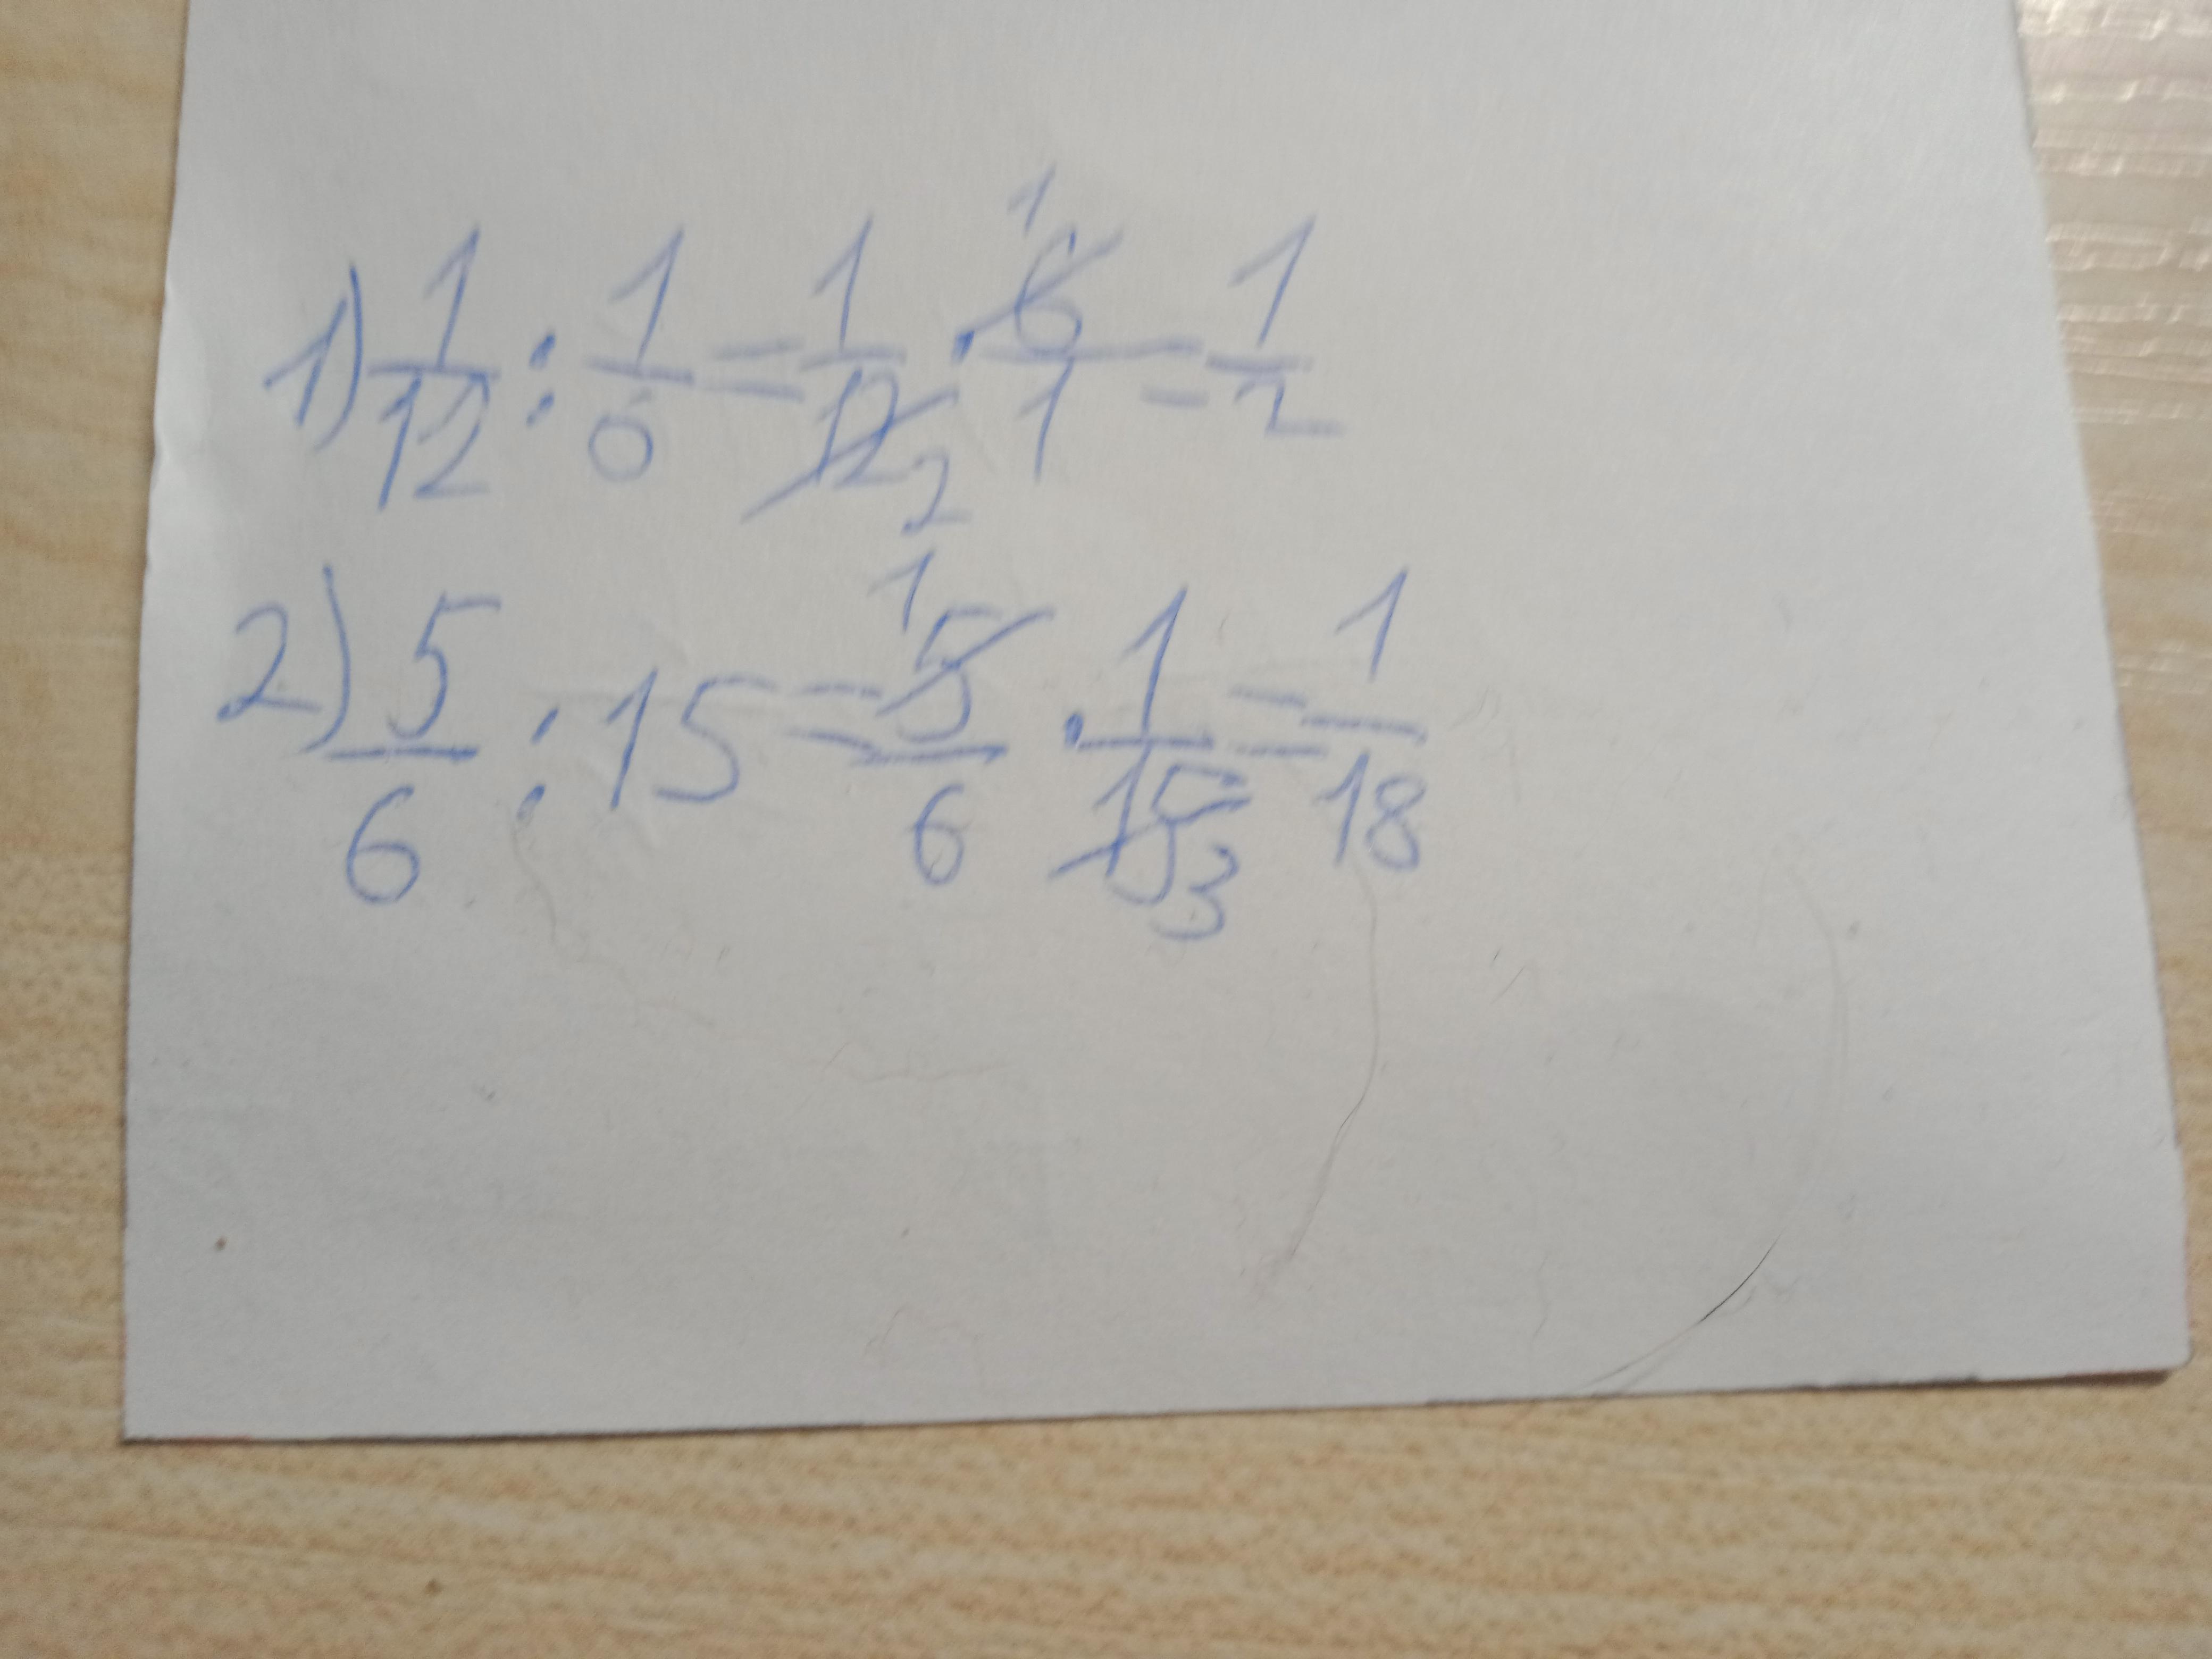 1) 1/12 : 1/6 = 1/12 2 · 1 6/1 = 1/2
2) 5/6 : 15 = 1 5/6 · 1/15 3 = 1/18